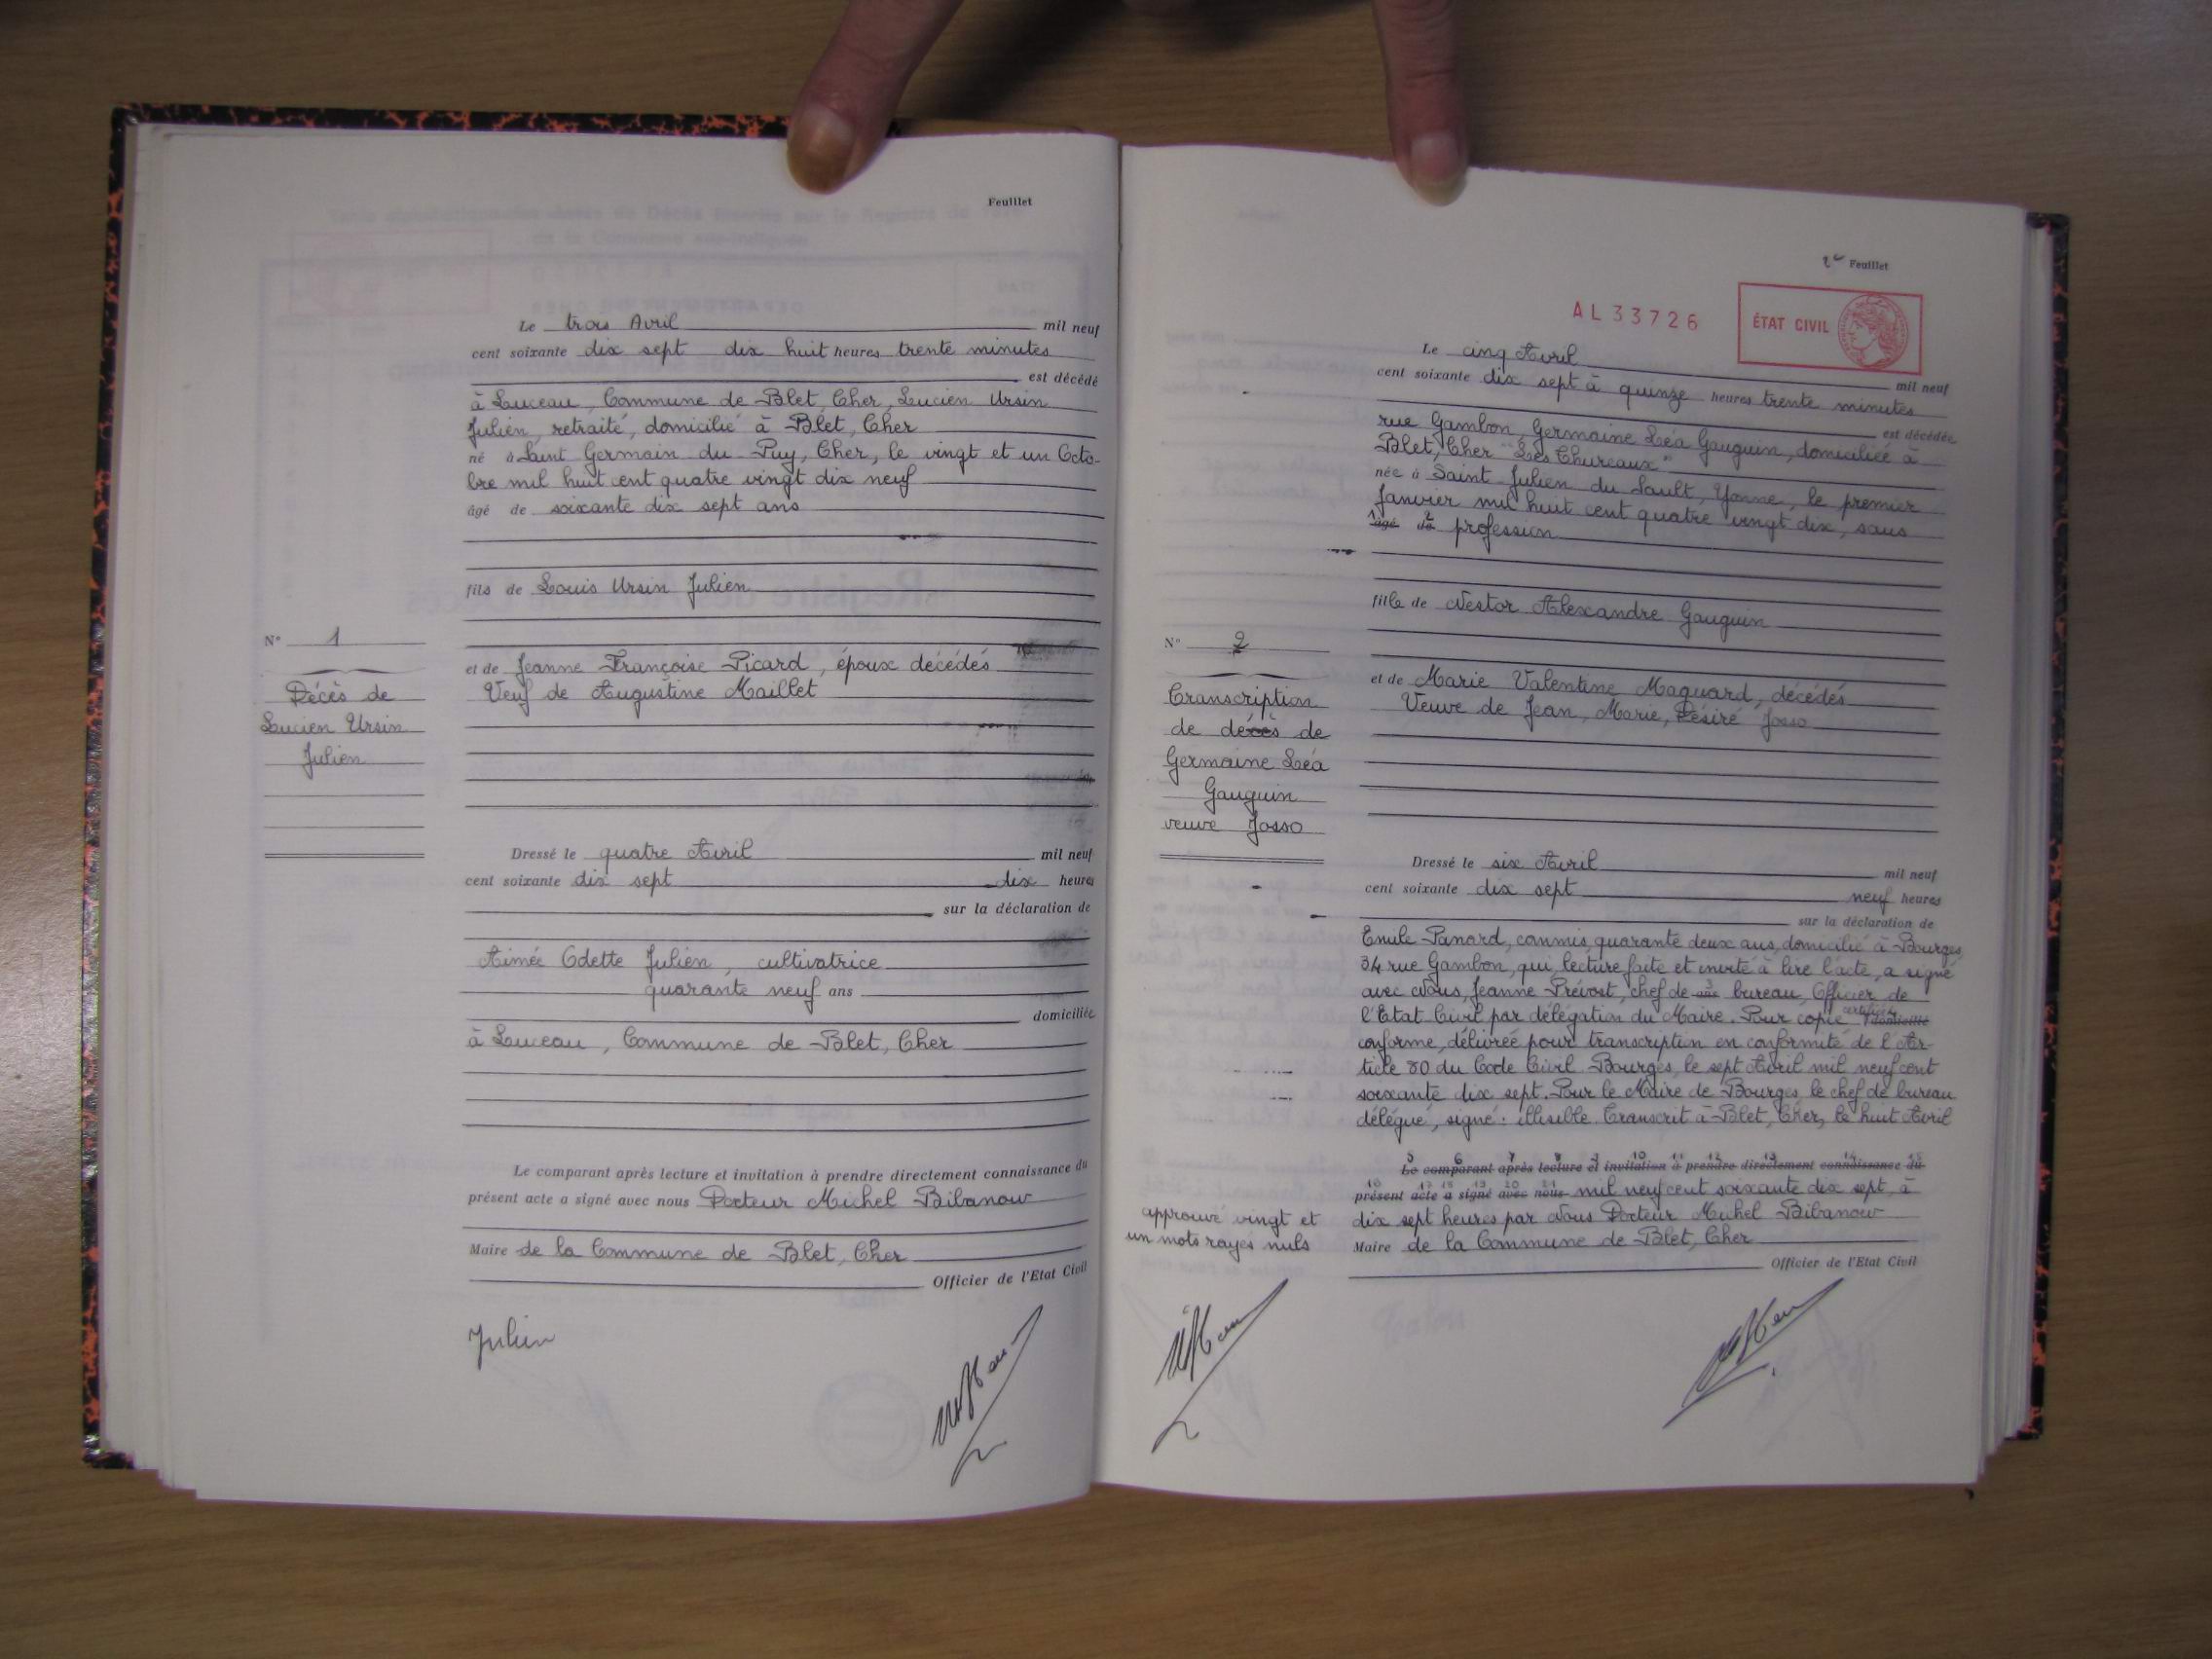 Feuillet
Le trois Avril mil neuf
cent soixante dix sept dix huit heures trente minutes
est décédé
à Luceau, Commune de Blet, Cher, Lucien Ursin
Julien, retraité, domicilié à Blet, Cher
né à Saint Germain du Puy, Cher, le vingt et un Octo-
bre mil huit cent quatre vingt dix neuf
âgé de soixante dix sept ans
fils de Louis Ursin Julien
N° 1
et de Jeanne Françoise Picard, époux décédés
Décès de
Lucien Ursin
Julien
Veuf de Augustine Maillet
Dressé le quatre Avril mil neuf
cent soixante dix sept dix heures
sur la déclaration de
Aimée Odette Julien, cultivatrice
quarante neuf ans
domiciliée
à Luceau, Commune de Blet, Cher
Le comparant après lecture et invitation à prendre directement connaissance du
présent acte a signé avec nous Docteur Michel Bibanow
Maire de la Commune de Blet, Cher
Officier de l'Etat Civil
Julien
2e Feuillet
AL 33726
ÉTAT CIVIL
Le cinq Avril mil neuf
cent soixante dix sept à quinze heures trente minutes
est décédée
rue Gambon, Germaine Léa Gauguin, domiciliée à
Blet, Cher "Les Thureaux"
née à Saint Julien du Sault, Yonne, le premier
Janvier mil huit cent quatre vingt dix, sans
1 âgé 2 de profession
fille de Nestor Alexandre Gauguin
N° 2
et de Marie Valentine Maquard, décédés
Veuve de Jean, Marie, Désiré Josso
Transcription
de décès de
Germaine Léa
Gauguin
veuve Josso
Dressé le six Avril mil neuf
cent soixante dix sept neuf heures
sur la déclaration de
Emile Panard, commis, quarante deux ans, domicilié à Bourges,
34 rue Gambon, qui, lecture faite et invité à lire l'acte, a signé
avec Nous, Jeanne Prévost, chef de 3 ans bureau, Officier de
l'Etat Civil par délégation du Maire. Pour copie certifiée 4 domicilié
conforme, délivrée pour transcription en conformité de l'Ar-
ticle 80 du Code Civil. Bourges, le sept Avril mil neuf cent
soixante dix sept. Pour le Maire de Bourges, le chef de bureau
délégué, signé : illisible. Transcrit à Blet, Cher, le huit Avril
5 6 7 8 9 10 11 12 13 14 15
Le comparant après lecture et invitation à prendre directement connaissance du
16 17 18 19 20 21
présent acte a signé avec nous mil neuf cent soixante dix sept, à
dix sept heures par Nous Docteur Michel Bibanow
Maire de la Commune de Blet, Cher
Officier de l'Etat Civil
approuvé vingt et
un mots rayés nuls